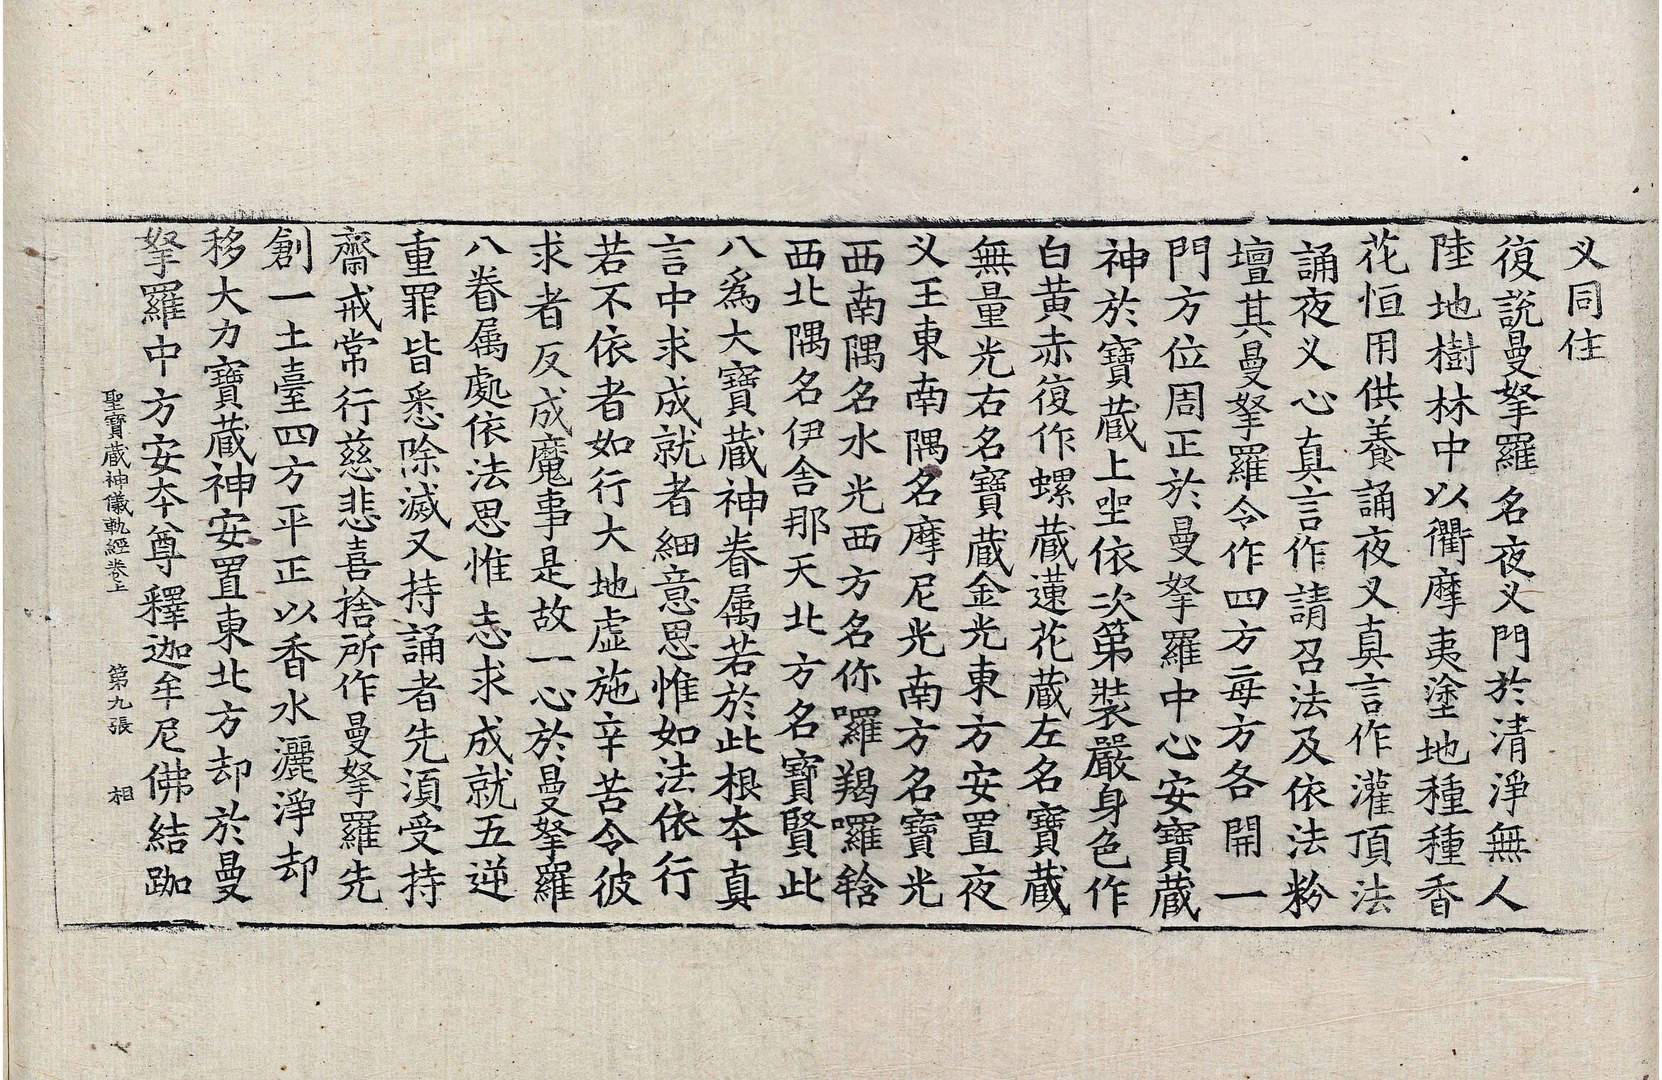 义同住
復說曼拏羅名夜义門於清淨無人
陸地樹林中以衢摩夷塗地種種香
花恒用供養誦夜义真言作灌頂法
誦夜义心真言作請召法及依法粉
壇其曼拏羅令作四方每方各開一
門方位周正於曼拏羅中心安寶藏
神於寶藏上坐依次第裝嚴身色作
白黃赤復作螺藏蓮花藏左名寶藏
無量光右名寶藏金光東方安置夜
义王東南隅名摩尼光南方名寶光
西南隅名水光西方名你囉羯囉㪉
西北隅名伊舍那天北方名寶賢此
八為大寶藏神眷屬若於此根本真
言中求成就者細意思惟如法依行
若不依者如行大地虛施辛苦令彼
求者反成魔事是故一心於曼拏羅
八眷属處依法思惟志求成就五逆
重罪皆悉除滅又持誦者先須受持
齋戒常行慈悲喜捨所作曼拏羅先
創一土臺四方平正以香水灑淨却
移大力寶藏神安置東北方却於曼
拏羅中方安本尊釋迦牟尼佛結跏
聖寶藏神儀軌經卷上 第九張 相